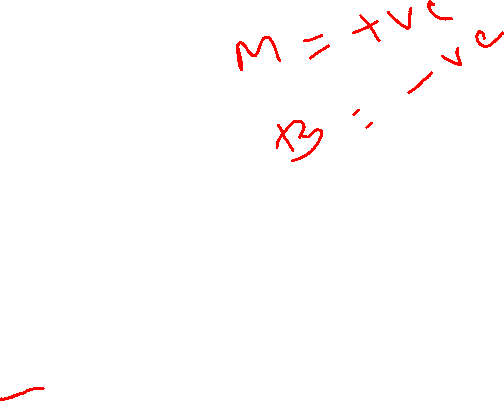 M = +ve
B = -ve